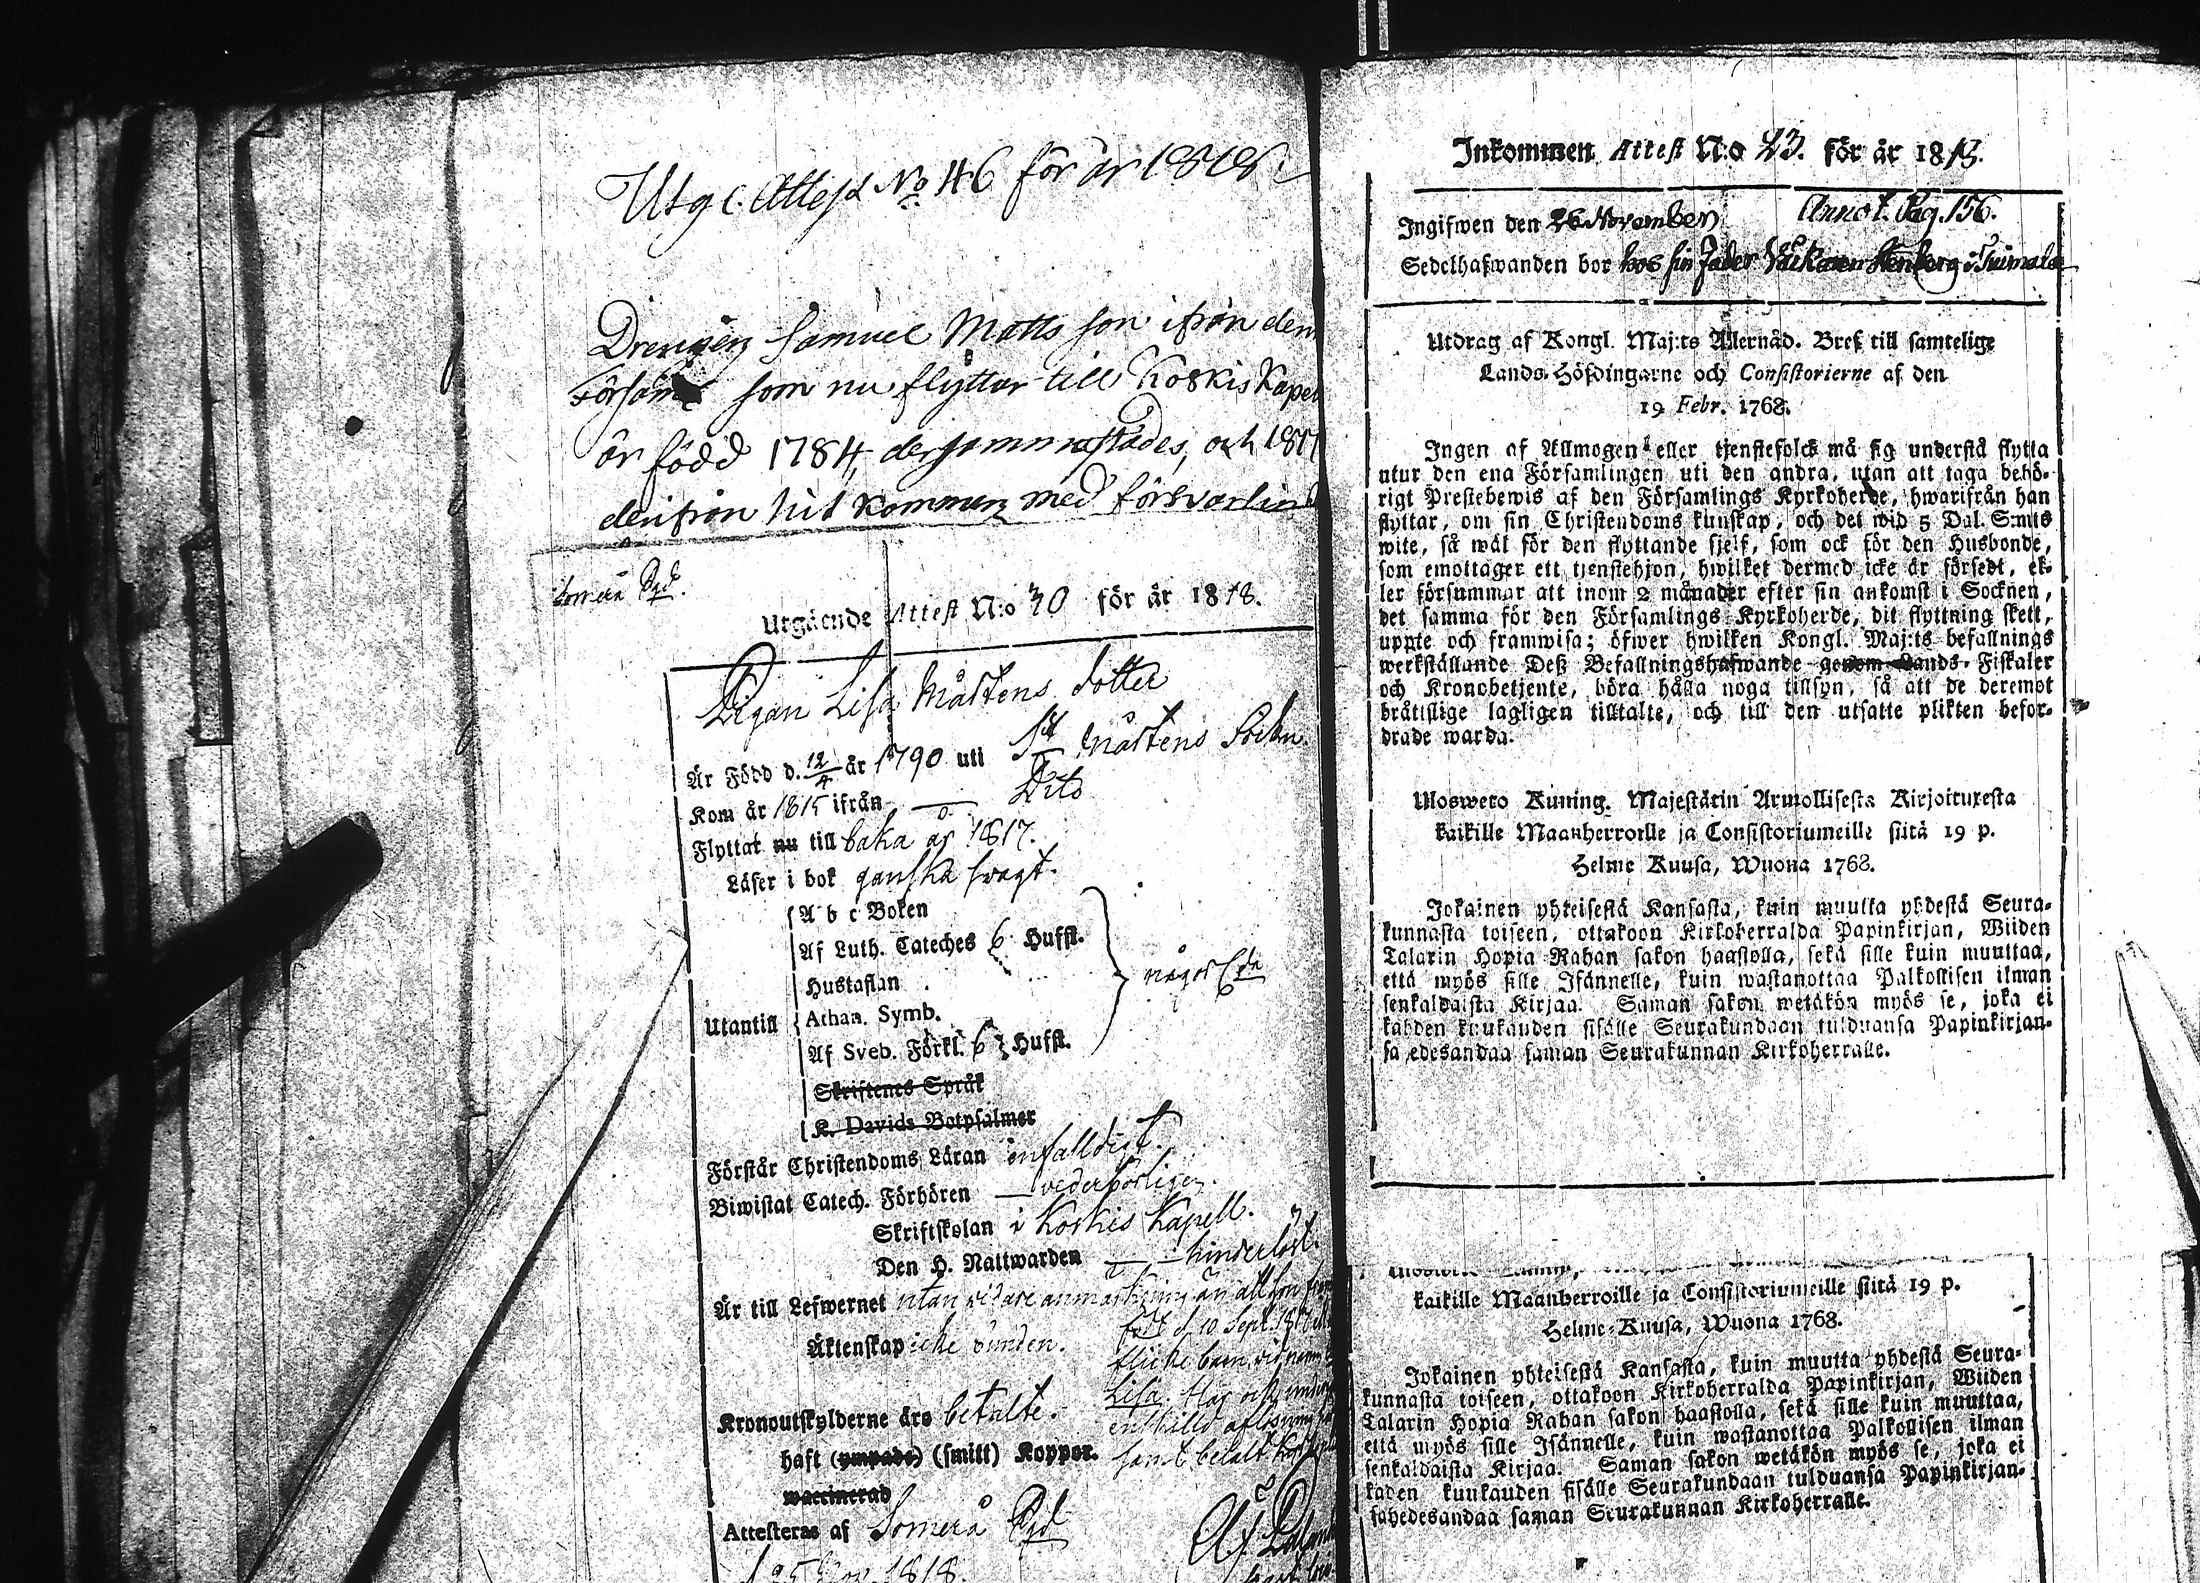 Utg. Attest No 46 för år 1818.
Drengen Samuel Matts son ifrån den
Församl som nu flyttar till Koskis Kapel
är född 1784, dersammastädes, och 1817
derifrån hit kommen med försvarlig
Somerå Pgd.
Utgående Attest N:o 40 för år 1818.
Pigan Lisa Mårtens dotter
Är Född d. 12/4 år 1790 uti St Mårtens Sockn.
Kom år 1815 ifrån — Dito
Flyttat nu till baka år 1817.
Läser i bok ganska swagt.
Utantill
A b c Boken
Af Luth. Cateches 6 Hufst.
Hustaflan
Athan. Symb.
Af Sveb. Förkl. 6 Hufst.
något
Skriftenes Språk
K. Davids Botpsalmer
Förstår Christendoms Läran enfalldigt.
Biwistat Catech. Förhören — vederbörligen.
Skriftskolan i Koskis Kapell.
Den H. Nattwarden — hinderlöst.
Är till Lefwernet utan vidare anmärkning än att hon
födt d. 10 Sept. 18
flicke barn, vid namn
Lisa. Har och
enskilld aflösning
samt betalt
Äktenskap icke bunden.
Kronoutskylderne äro betalte.
haft (ympade) (smitt) Koppor.
waccinerad
Attesteras af Somerå Pgd
d 25 Nov. 1818.
Inkommen Attest N:o 23. för år 1818.
Ingifwen den 26 November Annot. Pag. 156.
Sedelhafwanden bor hos sin fader Stenberg i Tuimala
Utdrag af Kongl. Maj:ts Allernåd. Bref till samtelige
Lands-Höfdingarne och Consistorierne af den
19 Febr. 1768.
Ingen af Allmogen eller tjenstefolck må sig understå flytta
utur den ena Församlingen uti den andra, utan att taga behö-
rigt Prestebewis af den Församlings Kyrkoherde, hwarifrån han
flyttar, om sin Christendoms kunskap, och det wid 5 Dal. S:mts
wite, så wäl för den flyttande sjelf, som ock för den Husbonde,
som emottager ett tjenstehjon, hwilket dermed icke är försedt, el-
ler försummar att inom 2 månader efter sin ankomst i Socknen,
det samma för den Församlings Kyrkoherde, dit flyttning skett,
uppte och framwisa; öfwer hwilken Kongl. Maj:ts befallnings
werkställande Deß Befallningshafwande genom Lands-Fiskaler
och Kronobetjente, böra hålla noga tillsyn, så att de deremot
bråttslige lagligen tilltalte, och till den utsatte plikten befor-
drade warda.
Ulosweto Kuning. Majestätin Armollisesta Kirjoituxesta
kaikille Maanherroille ja Consistoriumeille siitä 19 p.
Helme Kuusa, Wuona 1768.
Jokainen yhteisestä Kansasta, kuin muutta yhdestä Seura-
kunnasta toiseen, ottakoon Kirkoherralda Papinkirjan, Wiiden
Talarin Hopia Rahan sakon haastolla, sekä sille kuin muuttaa,
että myös sille Isännelle, kuin wastanottaa Palkollisen ilman
senkaldaista Kirjaa. Saman sakon wetäkön myös se, joka ei
kahden kuukauden sisälle Seurakundaan tulduansa Papinkirjan-
sa edesandaa saman Seurakunnan Kirkoherralle.
kaikille Maanherroille ja Consistoriumeille siitä 19 p.
Helme-Kuusa, Wuona 1768.
Jokainen yhteisestä Kansasta, kuin muutta yhdestä Seura-
kunnasta toiseen, ottakoon Kirkoherralda Papinkirjan, Wiiden
Talarin Hopia Rahan sakon haastolla, sekä sille kuin muuttaa,
että myös sille Isännelle, kuin wastanottaa Palkollisen ilman
senkaldaista Kirjaa. Saman sakon wetäkön myös se, joka ei
kaden kuukauden sisälle Seurakundaan tulduansa Papinkirjan-
sahedesandaa saman Seurakunnan Kirkoherralle.